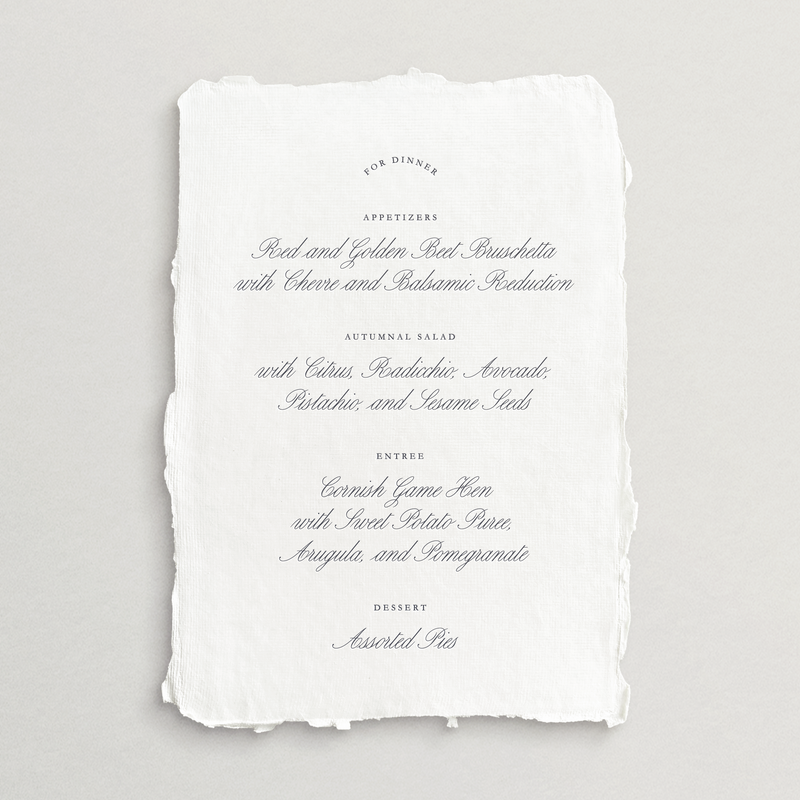 FOR DINNER
APPETIZERS
Red and Golden Beet Bruschetta
with Chevre and Balsamic Reduction
AUTUMNAL SALAD
with Citrus, Radicchio, Avocado,
Pistachio, and Sesame Seeds
ENTREE
Cornish Game Hen
with Sweet Potato Puree,
Arugula, and Pomegranate
DESSERT
Assorted Pies